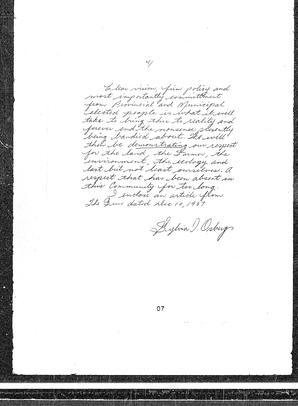 4/
Clear vision, firm policy and
most importantly committment
from Provincial and Municipal
elected people is what it will
take to bring this to reality and
forever end the nonsense presently
being bandied about. We will
then be demonstrating our respect
for the land, the Farmer, the
environment, the ecology and
last but not least ourselves. A
respect that has been absent in
this Community for too long.
I enclose an article from
The Dec 10, 1987
Sylvia
07